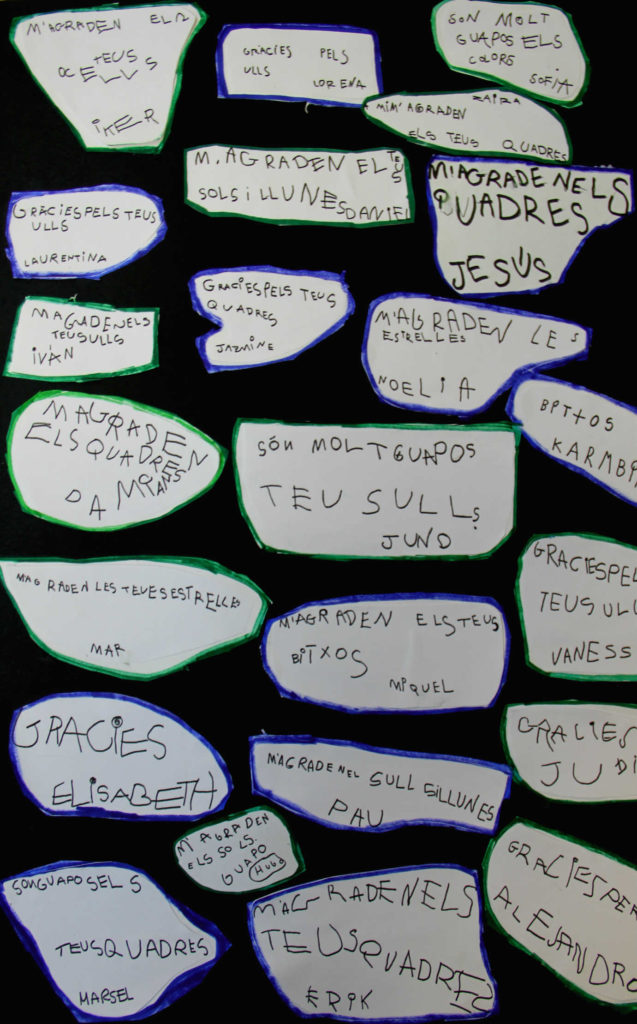 M'AGRADEN ELS
TEUS
OCELLS
IKER
GRÀCIES PELS
ULLS LORENA
SON MOLT
GUAPOS ELS
COLORS
SOFIA
ZAIRA
MIM'AGRADEN
ELS TEUS QUADRES
M.AGRADEN EL TEUS
SOLS I LLUNES DANIEL
M'AGRADENELS
QUADRES
JESÚS
GRÀCIESPELS TEUS
ULLS
LAURENTINA
GRACIESPELS TEUS
QUADRES
JAZMINE
MAGRADENELS
TEUSULLS
IVÁN
M'AGRADEN LES
ESTRELLES
NOELIA
BPTXOS
KARMBI
MAGRADEN
ELSQUADRES
DAMIANS
SÓN MOLTGUAPOS
TEUSULLS
JUNO
GRACIESPEL
TEUSULL
VANESS
MAGRADEN LES TEUESESTRELLES
MAR
M'AGRADEN ELSTEUS
BITXOS
MIQUEL
GRACIES
ELISABETH
GRACIES
JUDI
M'AGRADENEL SULLSILLUNES
PAU
M'AGRADEN
ELS SOLS.
GUAPO
HUGO
GRACIESPER
ALEJANDRO
SONGUAPOSELS
TEUSQUADRES
MARSEL
M'AGRADENELS
TEUSQUADRES
ERIK